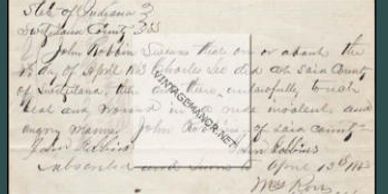 State of Indiana
Switzerland County SS
John Robbins Swears that on or about the
day of April 1863 Charles Lee did at said County
of Switzerland, then and there unlawfully touch
beat and wound in a rude insolent and
angry manner John Robbins of said County
John Robbins John Robbins
subscribed and sworn to April 13th 186
Wm
VINTAGEMANOR.NET